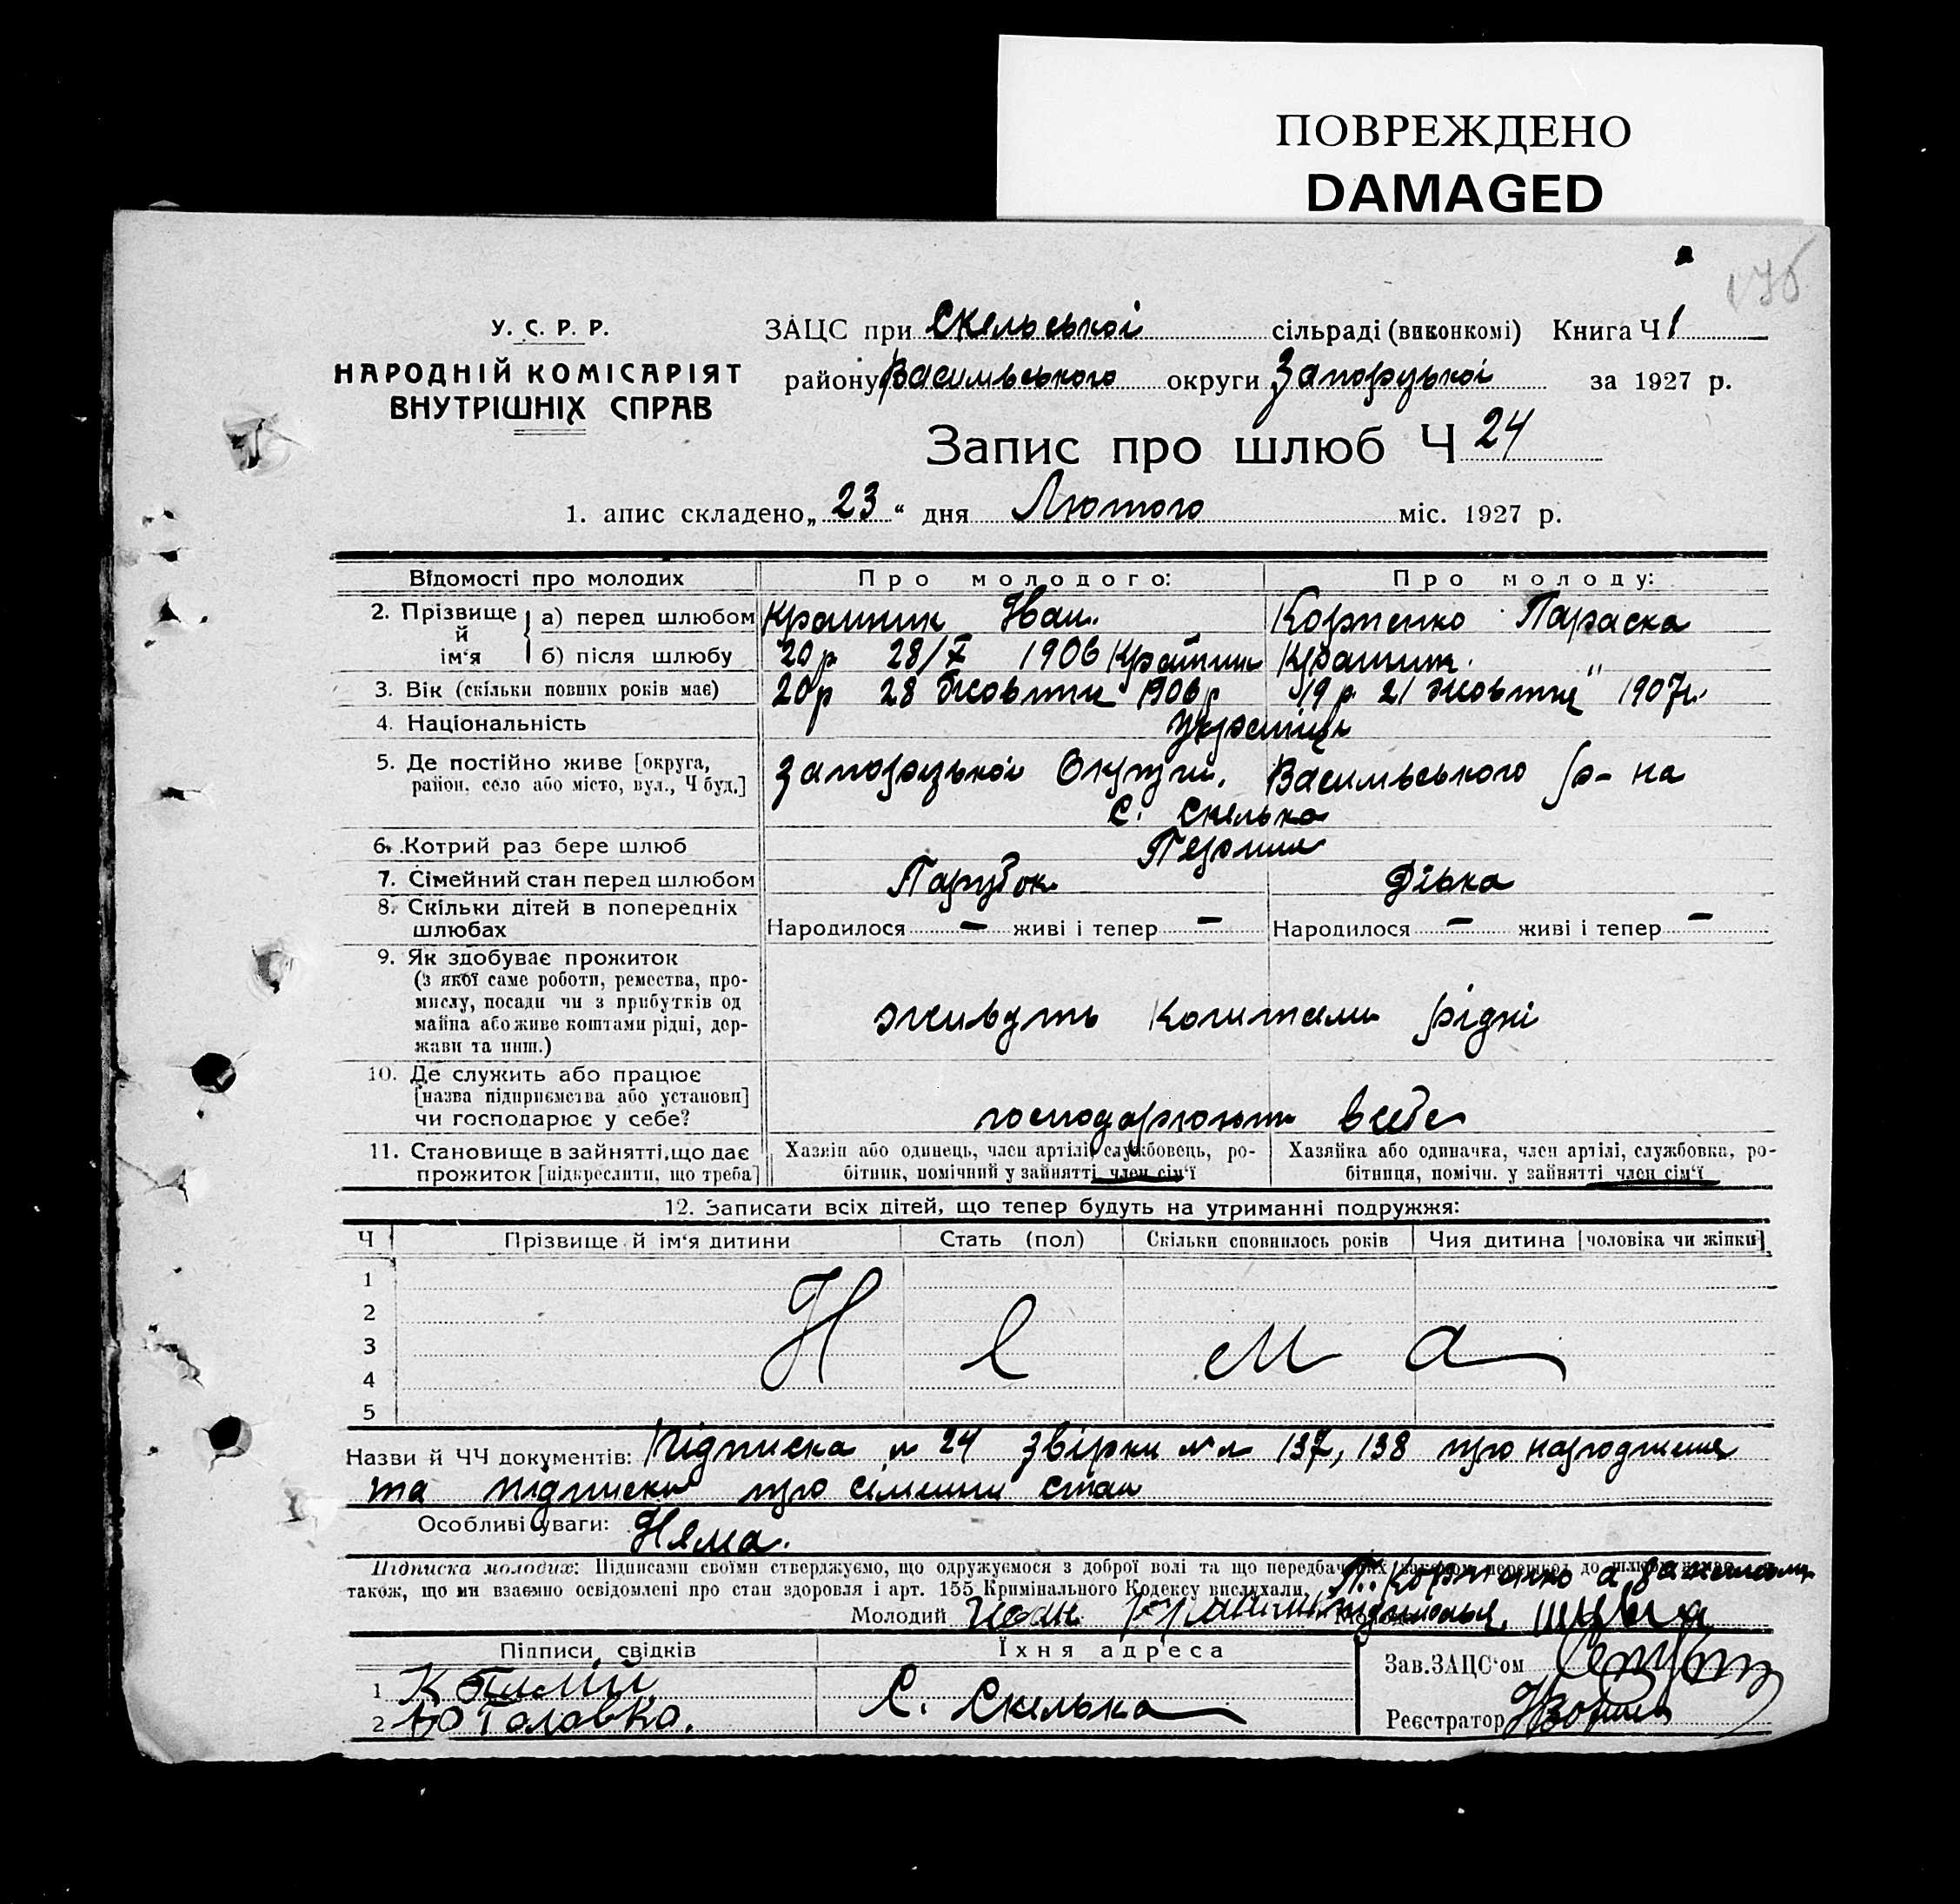 ПОВРЕЖДЕНО
DAMAGED
У. С. Р. Р.
НАРОДНІЙ КОМІСАРІЯТ
ВНУТРІШНІХ СПРАВ
ЗАЦС при Скельської сільраді (виконкомі) Книга Ч 1
району Василівського округи Запорізької за 1927 р.
Запис про шлюб Ч 24
1. апис складено „ 23 “ дня Лютого міс. 1927 р.
Відомості про молодих Про молодого: Про молоду:
2. Прізвище й ім‘я а) перед шлюбом Іван Параска
б) після шлюбу 20 р 28/X 1906 "
3. Вік (скільки повних років має) 20 р 28 1906 р 19 р 21 жовтня 1907 р.
4. Національність
5. Де постійно живе [округа, район, село або місто, вул., Ч буд.] Запорізької Округи, Василівського р-на
С. Скелька
6. Котрий раз бере шлюб
7. Сімейний стан перед шлюбом Парубок Дівка
8. Скільки дітей в попередніх шлюбах Народилося — живі і тепер — Народилося — живі і тепер —
9. Як здобуває прожиток
(з якої саме роботи, ремества, про-
мислу, посади чи з прибутків од
майна або живе коштами рідні, дер-
жави та инш.)
живуть коштами рідні
10. Де служить або працює
[назва підприємства або установи]
чи господарює у себе?
господарюют всебе
11. Становище в зайнятті, що дає
прожиток [підкреслити, що треба]
Хазяїн або одинець, член артілі, службовець, ро-
бітник, помічний у зайнятті член сім‘ї
Хазяйка або одиначка, член артілі, службовка, ро-
бітниця, помічн. у зайнятті член сім‘ї
12. Записати всіх дітей, що тепер будуть на утриманні подружжя:
Ч Прізвище й ім‘я дитини Стать (пол) Скільки сповнилось років Чия дитина [чоловіка чи жінки]
1
2
3
4
5
Н е м а
Назви й ЧЧ документів: Підписка № 24 звірки №№ 137, 138 про народження
та підписки про сімении стан
Особливі уваги: Няма.
Підписка молодих: Підписами своїми стверджуємо, що одружуємося з доброї волі та що
також, що ми взаємно освідомлені про стан здоровля і арт. 155 Кримінального Кодексу вислухали.
Молодий
Підписи свідків Їхня адреса
Зав. ЗАЦС‘ом
1
2 Головко. С. Скелька
Реєстратор